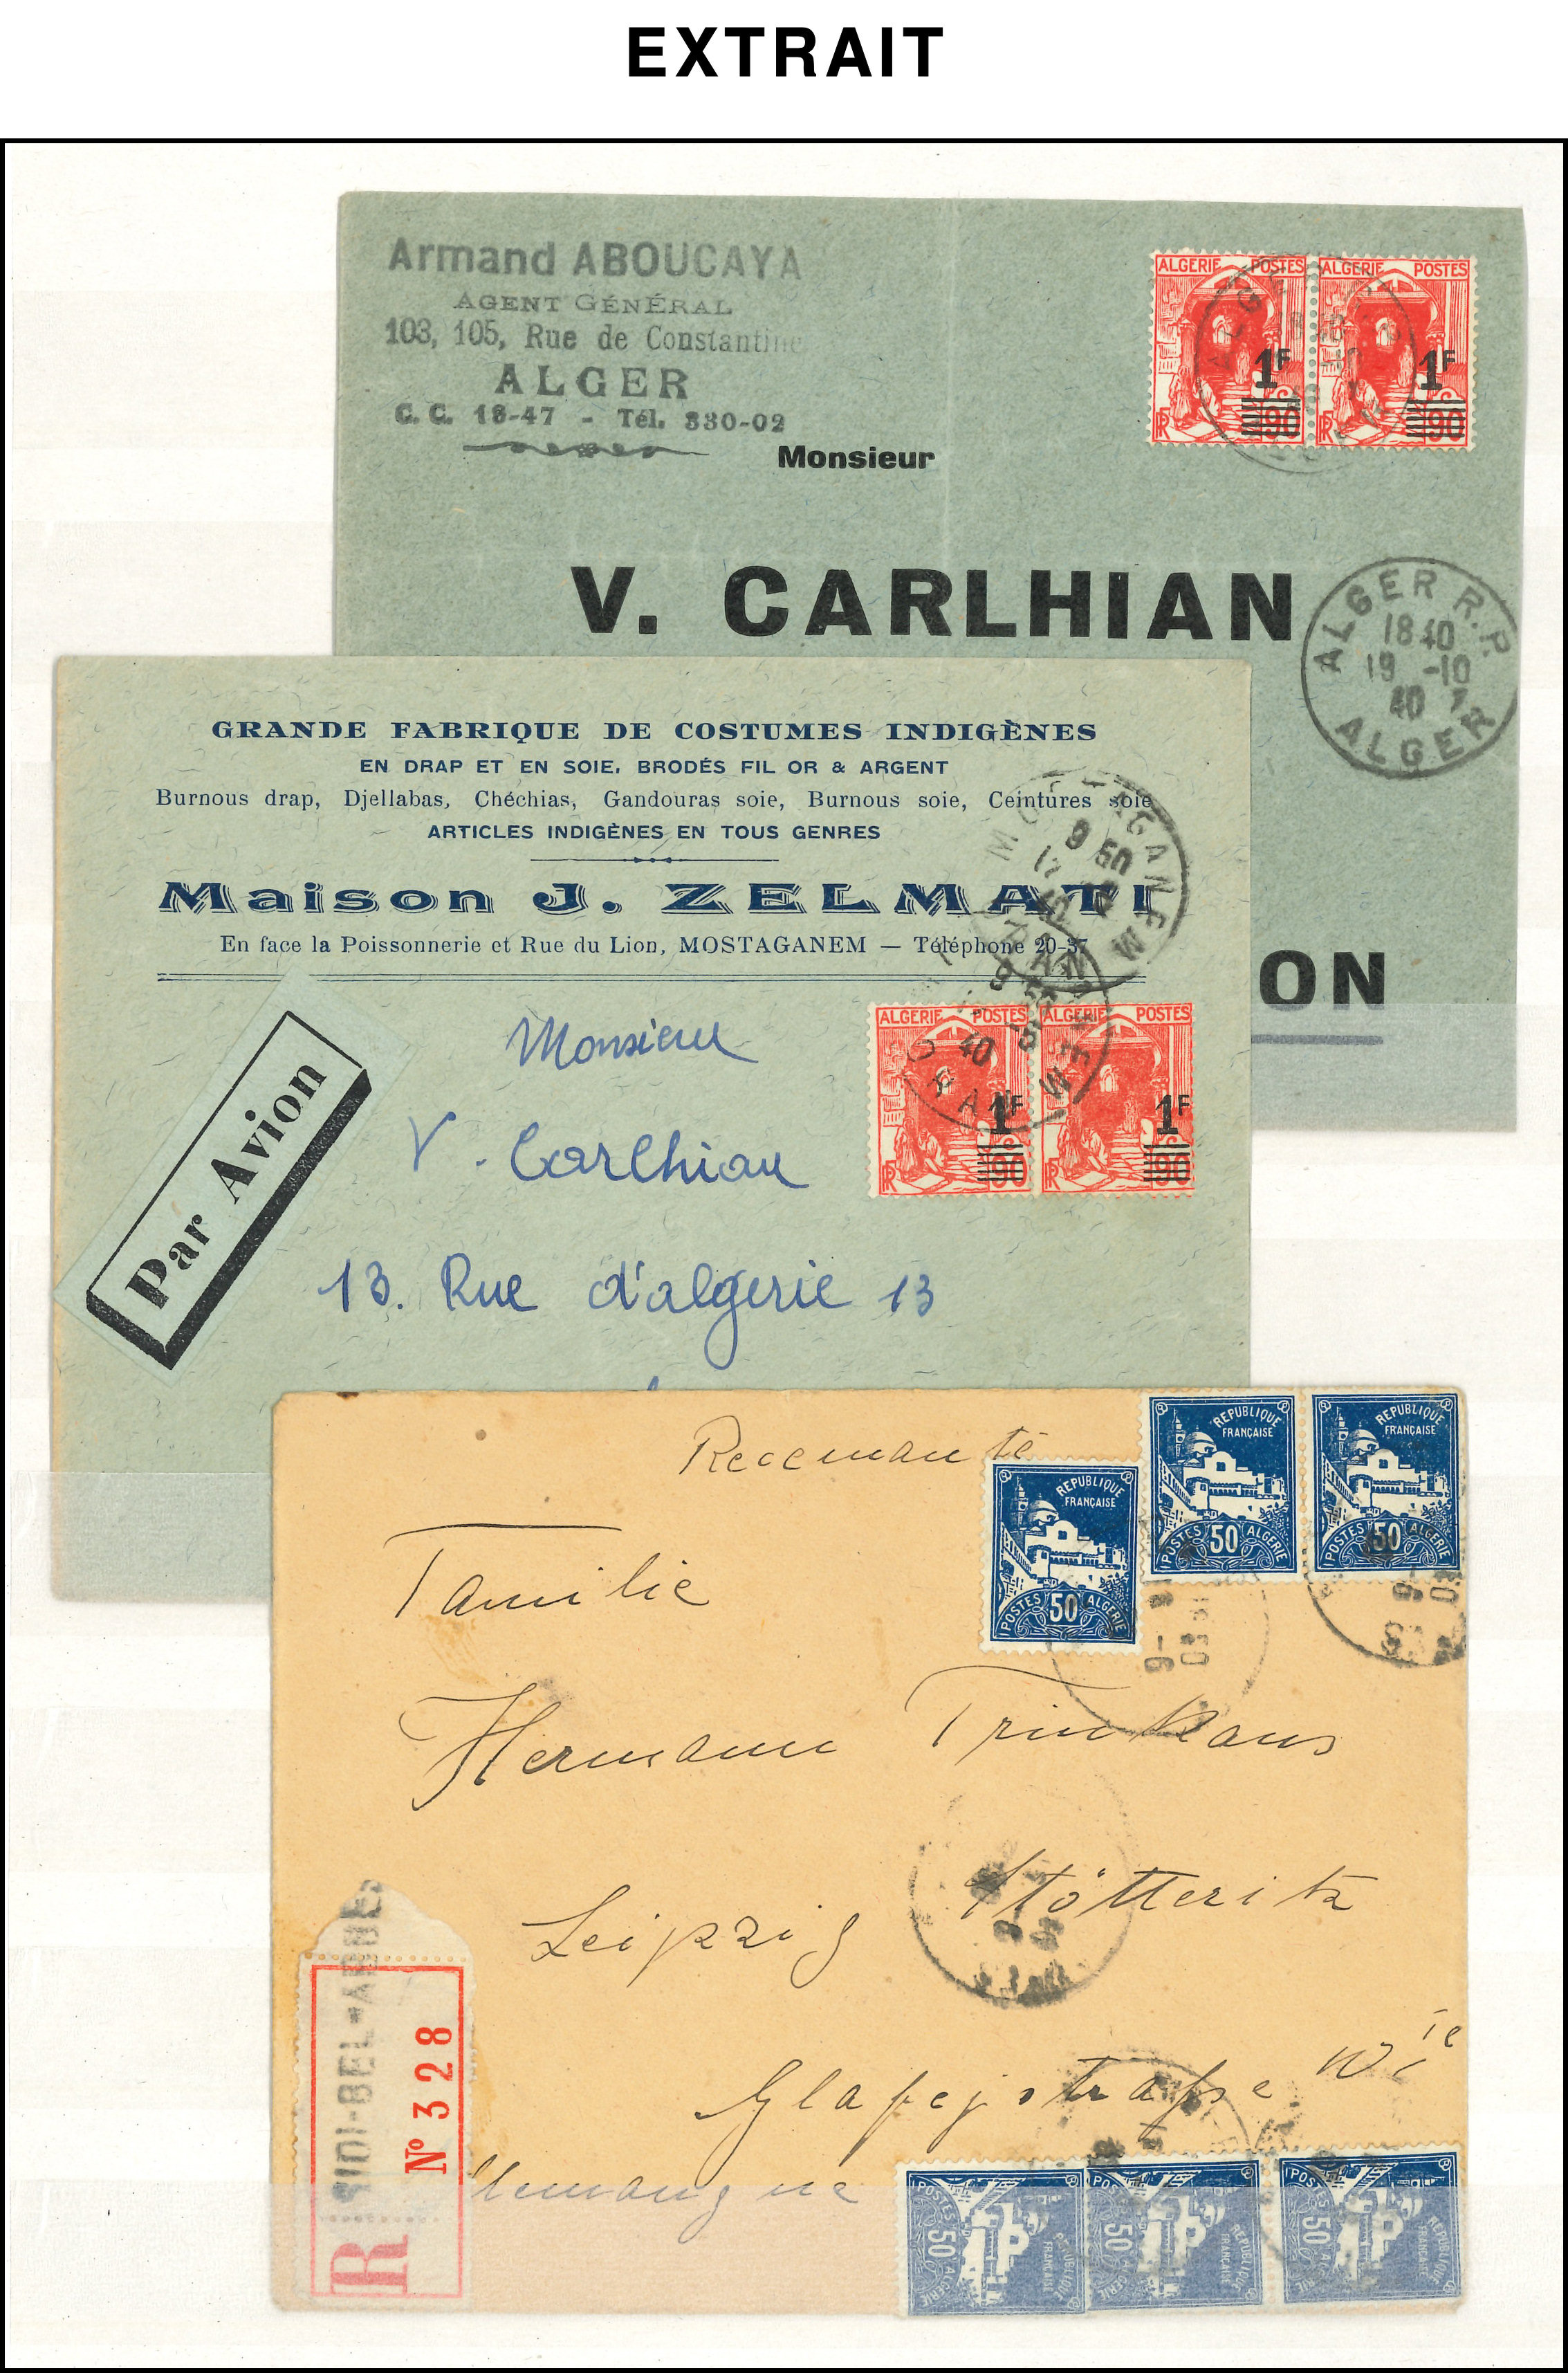 EXTRAIT
Armand ABOUCAYA
AGENT GÉNÉRAL
103, 105, Rue de Constantine
ALGER
C. C. 18-47 - Tél. 330-02
Monsieur
ALGERIE POSTES ALGERIE POSTES
1F 1F
90 90
RF RF
V. CARLHIAN
ALGER R.P.
18 40
19 -10
40
ALGER
ON
GRANDE FABRIQUE DE COSTUMES INDIGÈNES
EN DRAP ET EN SOIE, BRODÉS FIL OR & ARGENT
Burnous drap, Djellabas, Chéchias, Gandouras soie, Burnous soie, Ceintures soie
ARTICLES INDIGÈNES EN TOUS GENRES
Maison J. ZELMATI
En face la Poissonnerie et Rue du Lion, MOSTAGANEM — Téléphone 20-37
Par Avion
ALGERIE POSTES ALGERIE POSTES
1F 1F
90 90
RF RF
Monsieur
V. Carlhian
13. Rue d'algerie 13
Recemanté
REPUBLIQUE FRANÇAISE
POSTES 50 ALGERIE
REPUBLIQUE FRANÇAISE
POSTES 50 ALGERIE
REPUBLIQUE FRANÇAISE
POSTES 50 ALGERIE
Familie
Hermann Trinkaus
Leipzig Stötteritz
SIDI-BEL-ABBES
R Nº 328
POSTES 50 ALGERIE
REPUBLIQUE FRANÇAISE
POSTES 50 ALGERIE
REPUBLIQUE FRANÇAISE
POSTES 50 ALGERIE
REPUBLIQUE FRANÇAISE